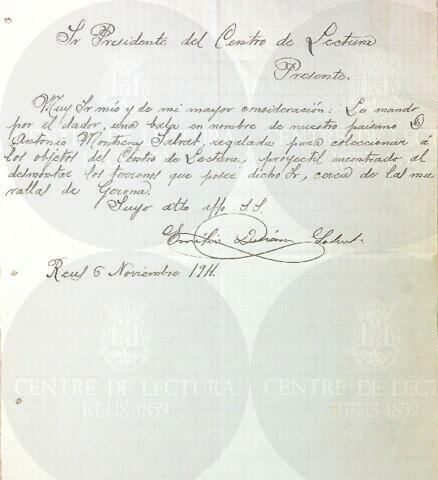 Sr Presidente del Centro de Lectura
Presente.
Muy Sr mio y de mi mayor consideración: Le mando
por el dador, una bala en nombre de nuestro paisano D
Antonio Montseny Sabat regalada para coleccionar á
los objetos del Centro de Lectura; proyectil encontrado al
desmontar los terrenos que posee dicho Sr, cerca de las mu
rallas de Gerona.
Suyo atto S. S.
Emilio
Reus 6 Noviembre 1911.
CENTRE DE LECTURA
REUS 1859
CENTRE DE LECTURA
REUS 1859